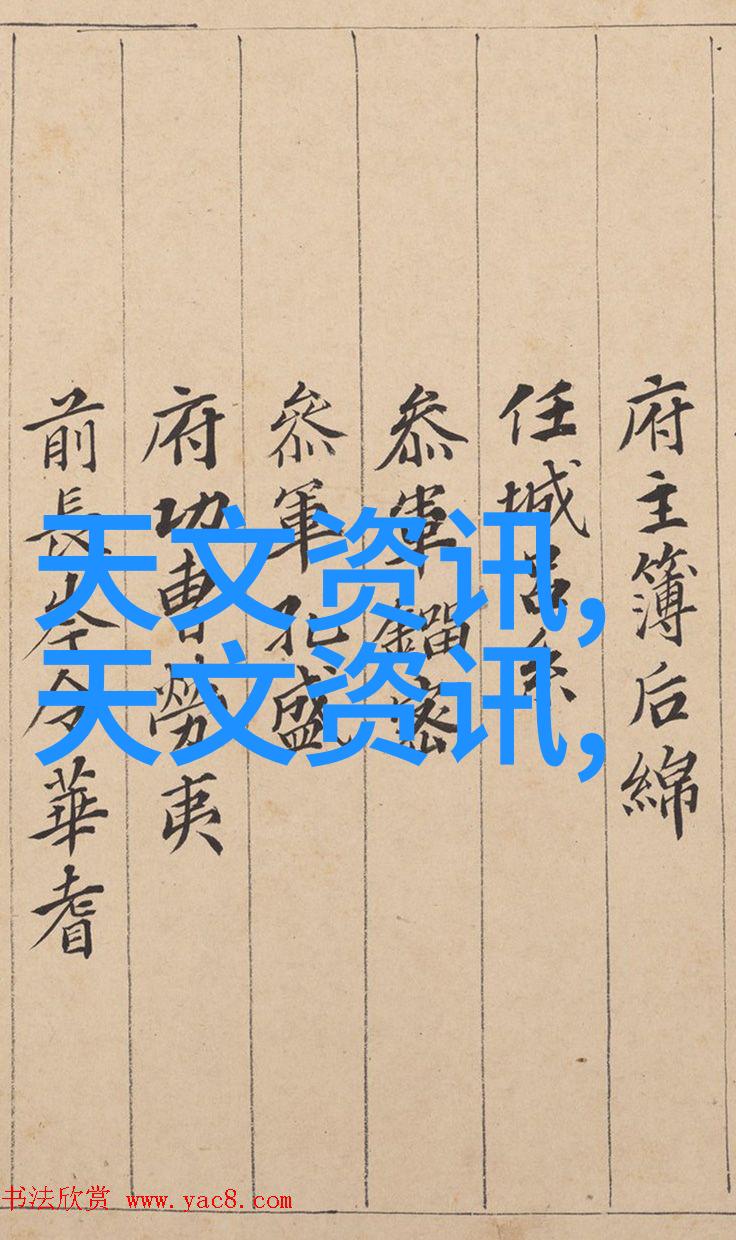 府主簿后綿
任城呂系
叅軍鎦密
叅軍孔盛
府功曹勞夷
前長岑令華耆
天文资讯,
天文资讯,
书法欣赏 www.yac8.com